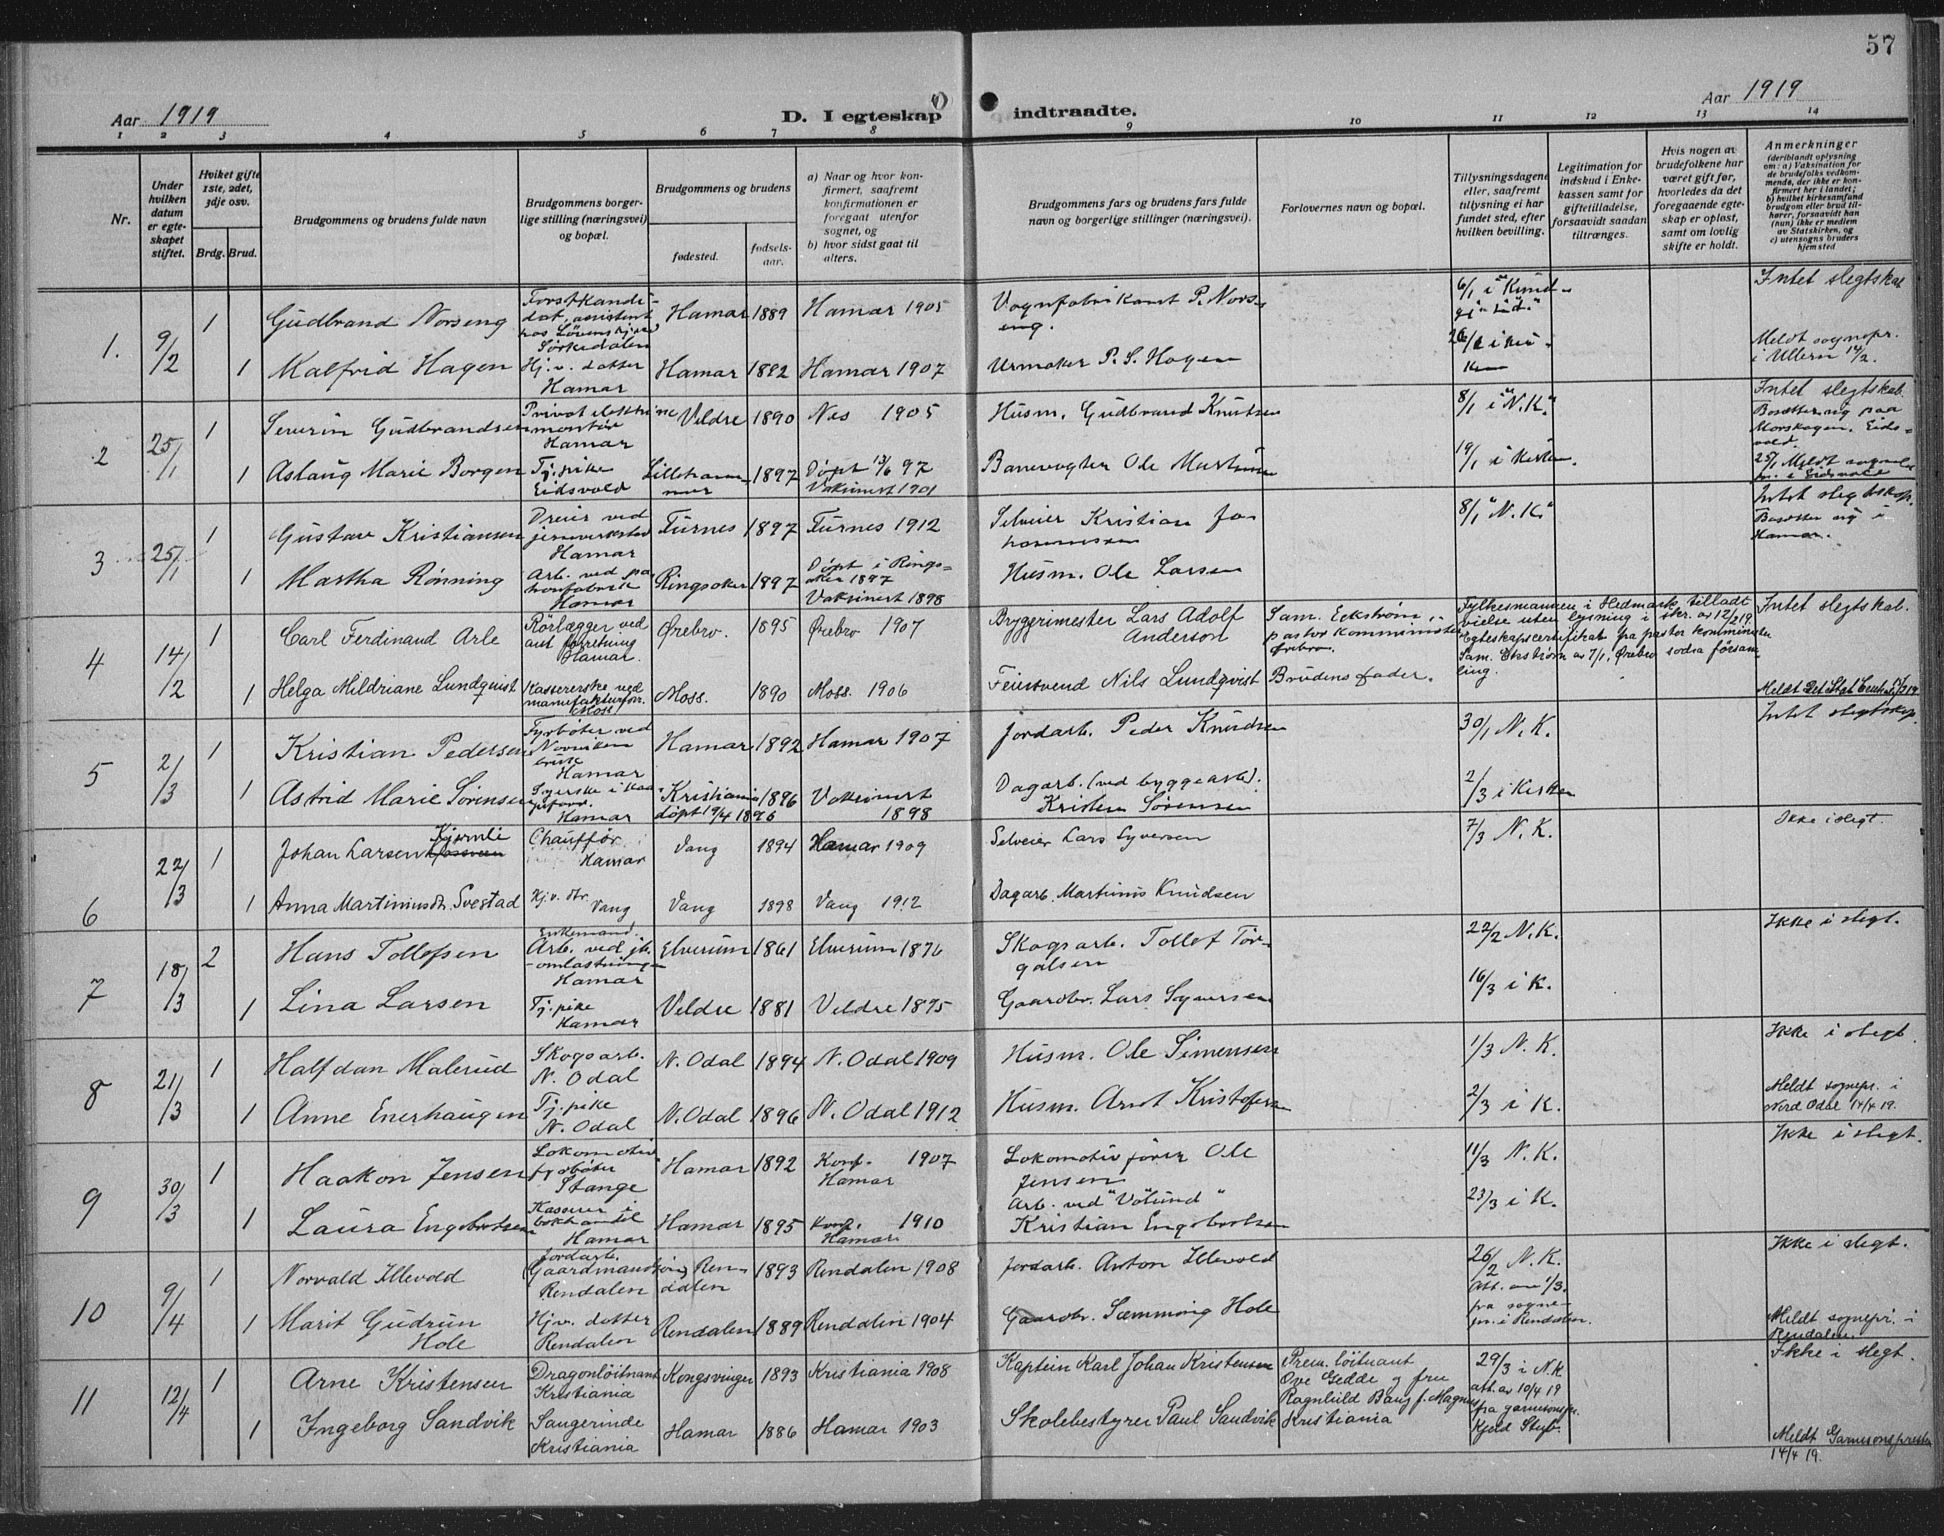 57
Aar 1919
D. I egteskap indtraadte.
Aar 1919
1 2 3 4 5 6 7 8 9 10 11 12 13 14
Nr.
Under hvilken datum er egteskapet stiftet.
Hvilket gifte 1ste, 2det, 3dje osv.
Brdg. Brud.
Brudgommens og brudens fulde navn
Brudgommens borgerlige stilling (næringsvei) og bopæl.
Brudgommens og brudens
fødested.
fødselsaar.
a) Naar og hvor konfirmert, saafremt konfirmationen er foregaat utenfor sognet, og
b) hvor sidst gaat til alters.
Brudgommens fars og brudens fars fulde navn og borgerlige stillinger (næringsvei).
Forlovernes navn og bopæl.
Tillysningsdagene eller, saafremt tillysning ei har fundet sted, efter hvilken bevilling.
Legitimation for indskud i Enkekassen samt for giftetilladelse, forsaavidt saadan tiltrænges.
Hvis nogen av brudefolkene har været gift før, hvorledes da det foregaaende egteskap er opløst, samt om lovlig skifte er holdt.
Anmerkninger
(deriblandt oplysning om: a) Vaksination for de brudefolks vedkommende, der ikke er konfirmert her i landet; b) hvilket kirkesamfund brudgom eller brud tilhører, forsaavidt han (hun) ikke er medlem av Statskirken, og c) utensogns bruders hjemsted
1. 9/2 1 Gudbrand Norseng Forstkandidat, assistent hos Løvenskjold Sørkedalen Hamar 1889 Hamar 1905 Vognfabrikant P. Norseng. 6/1 Intet slegtskap
1 Malfrid Hagen Hj.v. datter Hamar Hamar 1892 Hamar 1907 Urmaker P. S. Hagen Meldt sognepr. i Ullern 14/2.
2 25/1 1 Severin Gudbrandsen Privat montør Hamar Veldre 1890 Nes 1905 Husm. Gudbrand Knutsen 8/1 i "N.K." Intet slegtskab. Bosætter sig paa Morskogen. Eidsvold.
1 Aslaug Marie Borgen Tj. pike Eidsvold Lillehammer 1897 Døpt 13/6 97 Vaksinert 1901 Banevogter Ole Martinsen 19/1 i kirken. 25/1 Meldt sognepr. i Eidsvold
3 25/1 1 Gustav Kristiansen Dreier ved jernverksted Hamar Furnes 1897 Furnes 1912 Selveier Kristian Johannessen 8/1 "N.K." Intet slegtskap. Bosætter sig i Hamar.
1 Martha Rønning Arb. ved Hamar Ringsaker 1897 Døpt i Ringsaker 1897 Vaksinert 1898 Husm. Ole Larsen
4 14/2 1 Carl Ferdinand Arle Rørlægger ved forretning Hamar. Ørebro. 1895 Ørebro 1907 Bryggerimester Lars Adolf Anderson Sam. Eckstrøm, pastor kommminister Ørebro. Fylkesmanden i Hedmark tilladvielse uten lysning i skr. av 12/2 19. Egteskapscertifikat fra pastor komminister Sam. Eckstrøm av 7/1, Ørebro södra församling. Intet slegtskab.
1 Helga Mildriane Lundquist Kassererske ved manufakturforr. Moss Moss. 1890 Moss. 1906 Feiersvend Nils Lundqvist Brudens fader. Meldt Det Stat. Centr.
5 2/3 1 Kristian Pedersen Fyrbøter ved Hamar Hamar 1892 Hamar 1907 Jordarb. Peder Knudsen 30/1 N.K. Intet slegtskap
1 Astrid Marie Sørensen Syerske i Hamar Kristiania døpt 19/4 1896 1896 Vaksinert 1898 Dagarb. (ved byggearb). Kristen Sørensen 2/3 i kirken
6 22/3 1 Johan Larsen Kjernli Chauffør Hamar Vang 1894 Hamar 1909 Selveier Lars Syversen 7/3 N.K. Ikke i slegt.
1 Anna Martiniusdtr. Svestad Hj.v. dtr. Vang Vang 1898 Vang 1912 Dagarb. Martinius Knudsen
7 18/3 2 Hans Tollefsen Enkemand. Arb. ved jb. -omlastningen Hamar Elverum 1861 Elverum 1876 Skogsarb. Tollef Torgalsen 22/2 N.K. Ikke i slegt.
1 Lina Larsen Tj. pike Hamar Veldre 1881 Veldre 1895 Gaardbr. Lars Syversen 16/3 i K.
8 21/3 1 Halfdan Malerud Skogsarb. N. Odal N. Odal 1894 N. Odal 1909 Husm. Ole Simensen 1/3 N.K. Ikke i slegt.
1 Anne Enerhaugen Tj. pike N. Odal N. Odal 1896 N. Odal 1912 Husm. Arnt Kristofersen 2/3 i K. Meldt sognepr. i Nord Odal 14/4 19.
9 30/3 1 Haakon Jensen Lokomotivfyrbøter Stange Hamar 1892 Konf. 1907 Hamar Lokomotivfører Ole Jensen 11/3 N.K. Ikke i slegt.
1 Laura Engebretsen Kasserer i bokhandel Hamar Hamar 1895 Konf. 1910 Hamar Arb. ved "Vølund" Kristian Engebretsen 23/3 i K.
10 9/4 1 Norvald Illevold Jordarb. (Gaardmandssøn) Rendalen Rendalen 1893 Rendalen 1908 Jordarb. Anton Illevold 26/2 N.K. Att. av 1/3. fra sognepr. i Rendalen. Ikke i slegt.
1 Marit Gudrun Hole Hjv. datter Rendalen Rendalen 1889 Rendalen 1904 Gaardbr. Sæmming Hole Meldt sognepr. i Rendalen.
11 12/4 1 Arne Kristensen Dragonløitnant Kristiania Kongsvinger 1893 Kristiania 1908 Kaptein Karl Johan Kristensen Prem. løitnant Ove Gedde og frue Ragnhild Bang f. Magnus Kristiania 29/3 i N.K. att. av 10/4 19 fra garnisonspr. Kjeld Stub. Ikke i slegt.
1 Ingeborg Sandvik Sangerinde Kristiania Hamar 1886 Hamar 1903 Skolebestyrer Paul Sandvik Meldt Garnisonspresten 14/4 19.